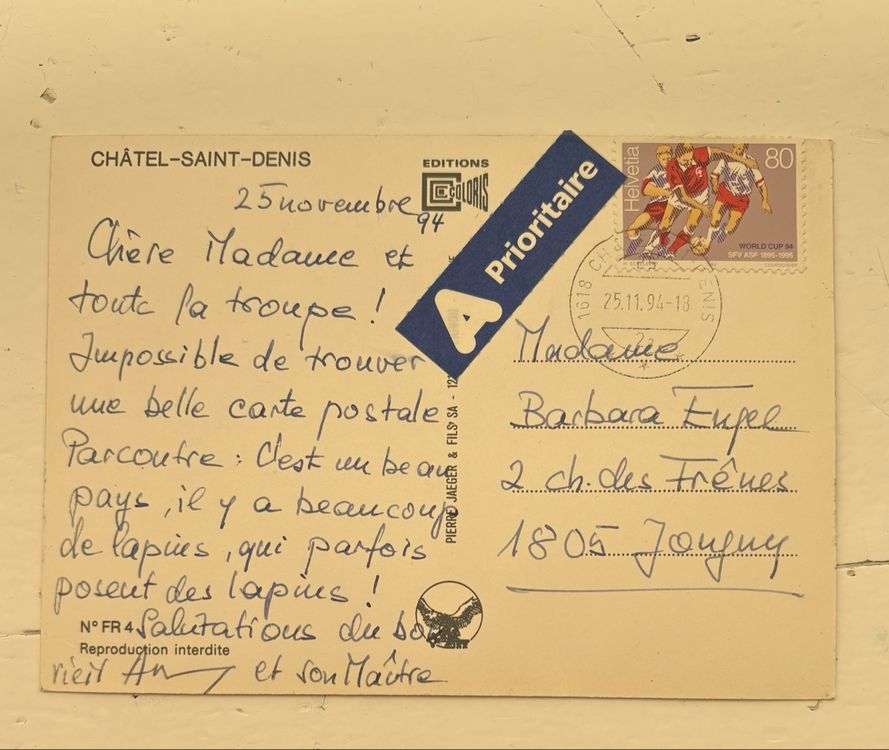 CHÂTEL-SAINT-DENIS
EDITIONS
COLORIS
25 novembre
94
Chère Madame et
toute la troupe !
Impossible de trouver
une belle carte postale.
Parcontre : C'est un beau
pays, il y a beaucoup
de lapins, qui parfois
posent des lapins !
Salutations du bon
vieil et son Maître
N° FR 4
Reproduction interdite
PIERRE JAEGER & FILS SA - 12
A Prioritaire
Helvetia
80
WORLD CUP 94
SFV ASF 1895-1995
1618
25.11.94-18
Madame
Barbara Engel
2 ch. des Frênes
1805 Jongny